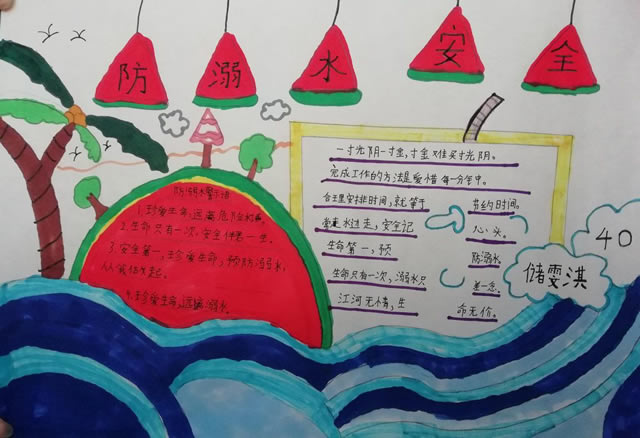 防溺水安全
防溺水警示语
1.珍爱生命,远离危险水域
2.生命只有一次,安全伴君一生。
3.安全第一,珍爱生命,预防溺水,
从我做起。
4.珍爱生命,远离溺水。
一寸光阴一寸金,寸金难买寸光阴。
完成工作的方法是爱惜每一分钟。
合理安排时间,就等于 节约时间。
水边走,安全记 心头。
生命第一,预 防溺水
生命只有一次,溺水只 差一念。
江河无情,生 命无价。
40
储雯淇